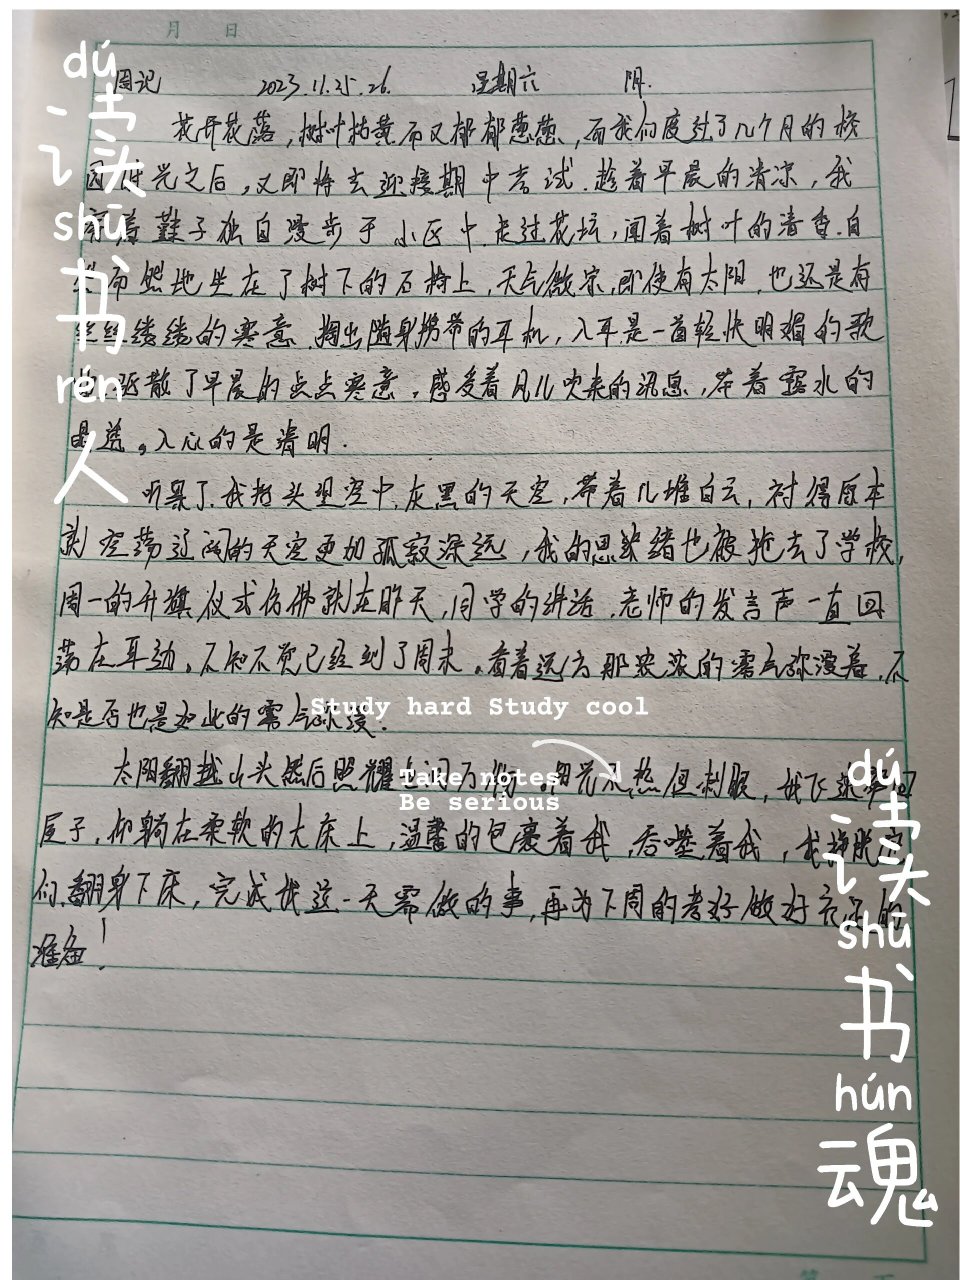 月 日
周记 2023.11.25.26. 星期六 阴.
花开花落，树叶枯黄而又郁郁葱葱，而我们度过了几个月的校
园时光之后，又即将去迎接期中考试.趁着早晨的清凉，我
穿着鞋子独自漫步于小区中.走过花坛，闻着树叶的清香.自
然而然地坐在了树下的石椅上，天气微凉，即使有太阳，也还是有
丝丝缕缕的寒意.掏出随身携带的耳机，入耳是一首轻快明媚的歌
驱散了早晨的点点寒意。感受着风儿吹来的讯息，带着露水的
晶莹。入心的是清明.
听累了.我抬头望空中.灰黑的天空，带着几堆白云，衬得原本
就空荡辽阔的天空更加孤寂深远，我的思绪也被拖去了学校，
周一的升旗仪式仿佛就在昨天，同学的讲话.老师的发言声一直回
荡在耳边。不知不觉已经到了周末。看着远方那浓浓的雾气弥漫着.不
知是否也是如此的雾气弥漫.
太阳翻越山头然后照耀 但刺眼，我飞速
屋子.仰躺在柔软的大床上，温馨的包裹着我.吞噬着我，我挣脱
们.翻身下床，完成我这一天需做的事，再为下周的考好做好充足的
准备！
dú
读
shū
书
rén
人
Study hard Study cool
Take notes
Be serious
dú
读
shū
书
hún
魂